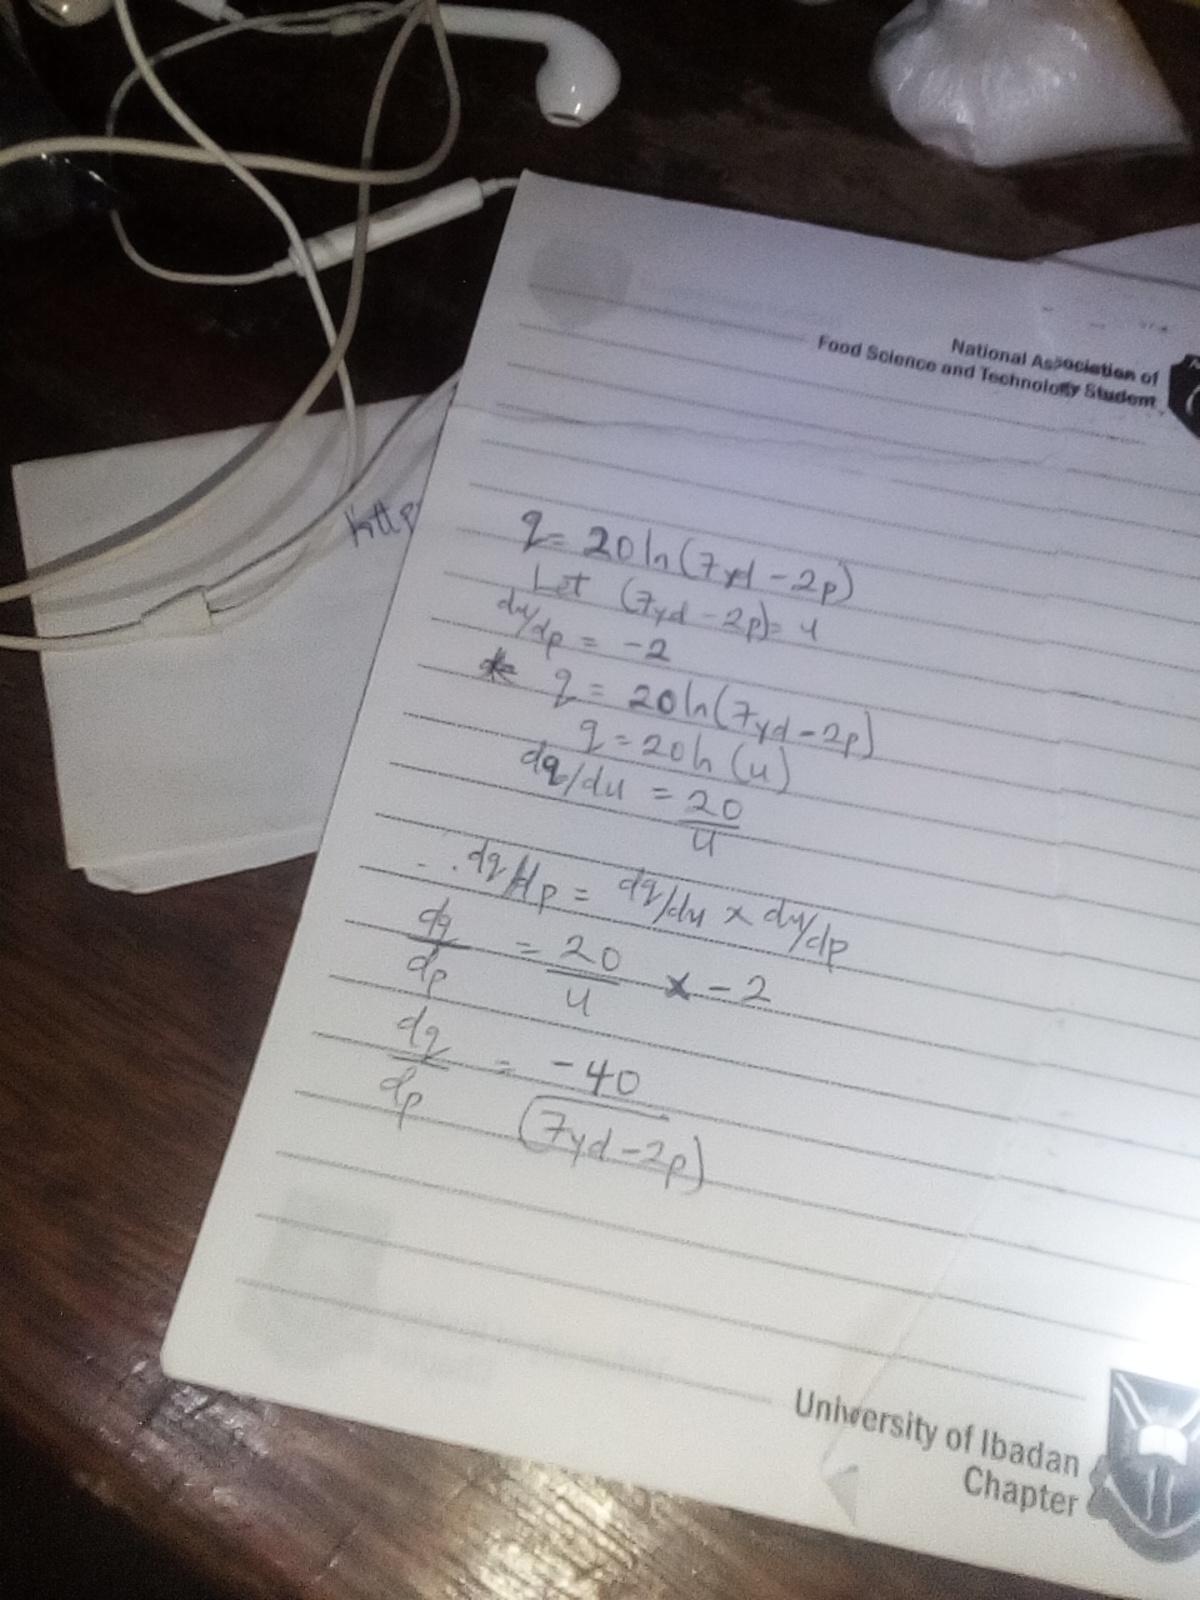 National Association of
Food Science and Technology Student
http
q = 20 ln (7yd - 2p)
Let (7yd - 2p) = u
du/dp = -2
q = 20 ln (7yd - 2p)
q = 20 ln (u)
dq/du = 20
u
∴ dq/dp = dq/du x du/dp
dq = 20 x - 2
dp u
dq = -40
dp (7yd - 2p)
University of Ibadan
Chapter